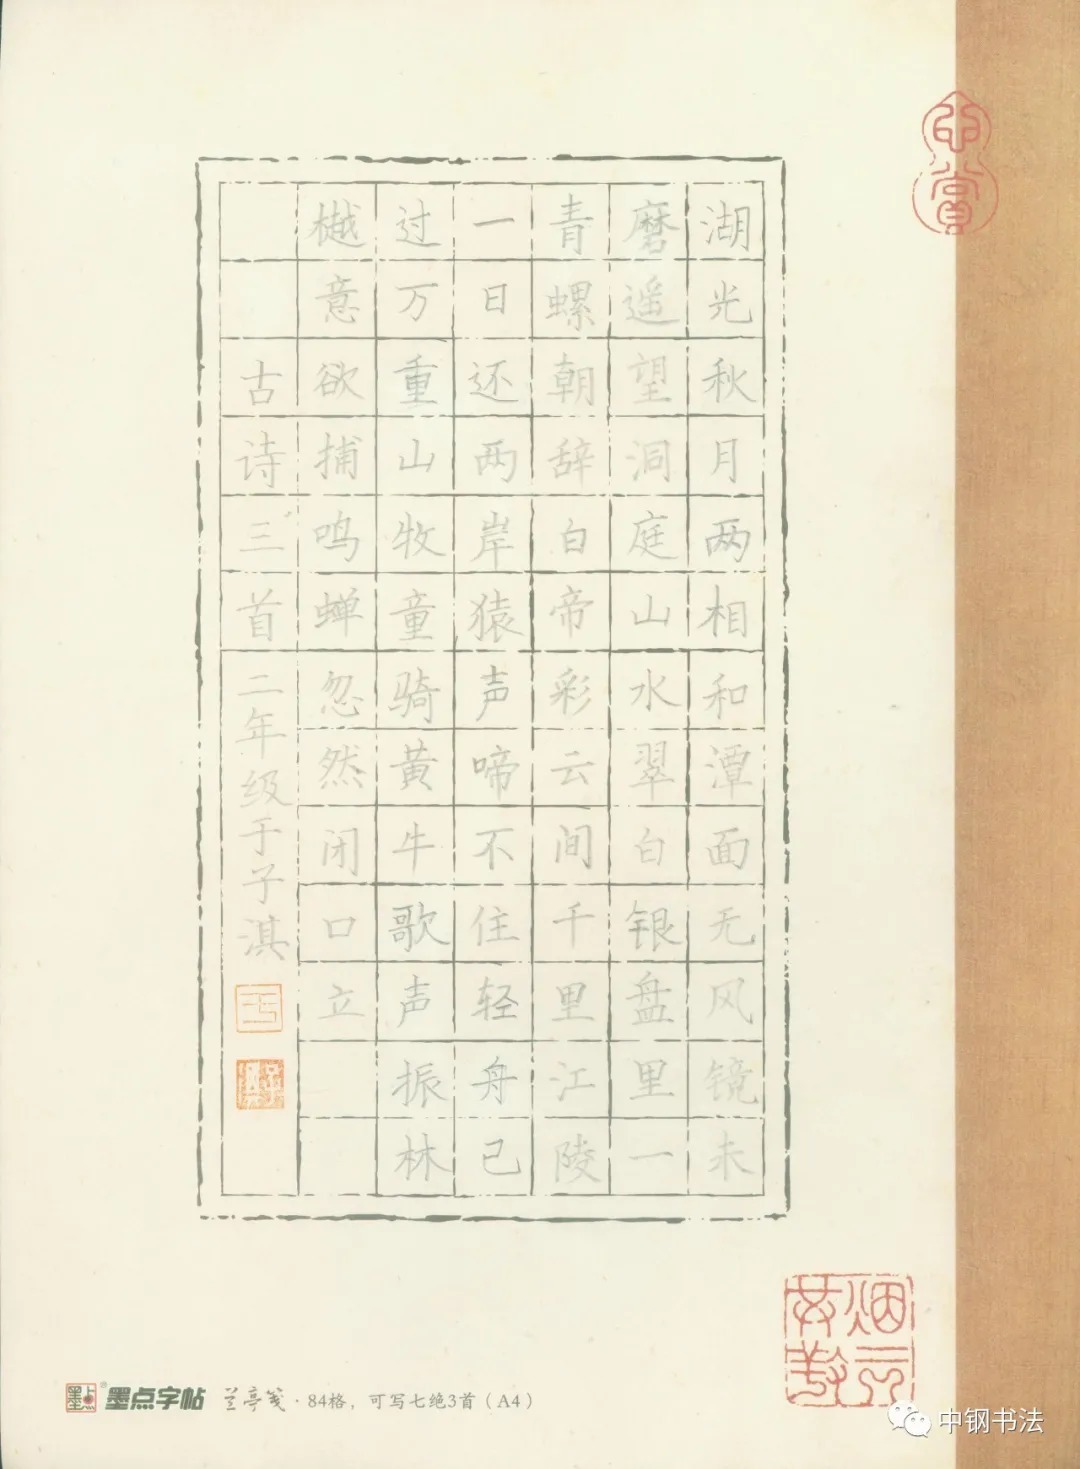 湖光秋月两相和潭面无风镜未
磨遥望洞庭山水翠白银盘里一
青螺朝辞白帝彩云间千里江陵
一日还两岸猿声啼不住轻舟已
过万重山牧童骑黄牛歌声振林
樾意欲捕鸣蝉忽然闭口立
古诗三首 二年级于子淇
墨点 墨点字帖 兰亭笺·84格，可写七绝3首（A4）
中钢书法